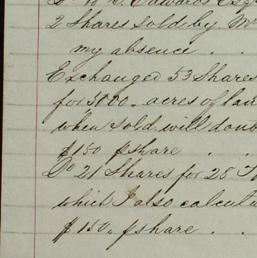 Edwards Esq
2 Shares sold by Mr
my absence . .
Exchanged 53 Shares
for 5000 acres of
when sold will doub
$150 pshare . .
Do 21 Shares for 28
which I also calcula
$150. pshare . .